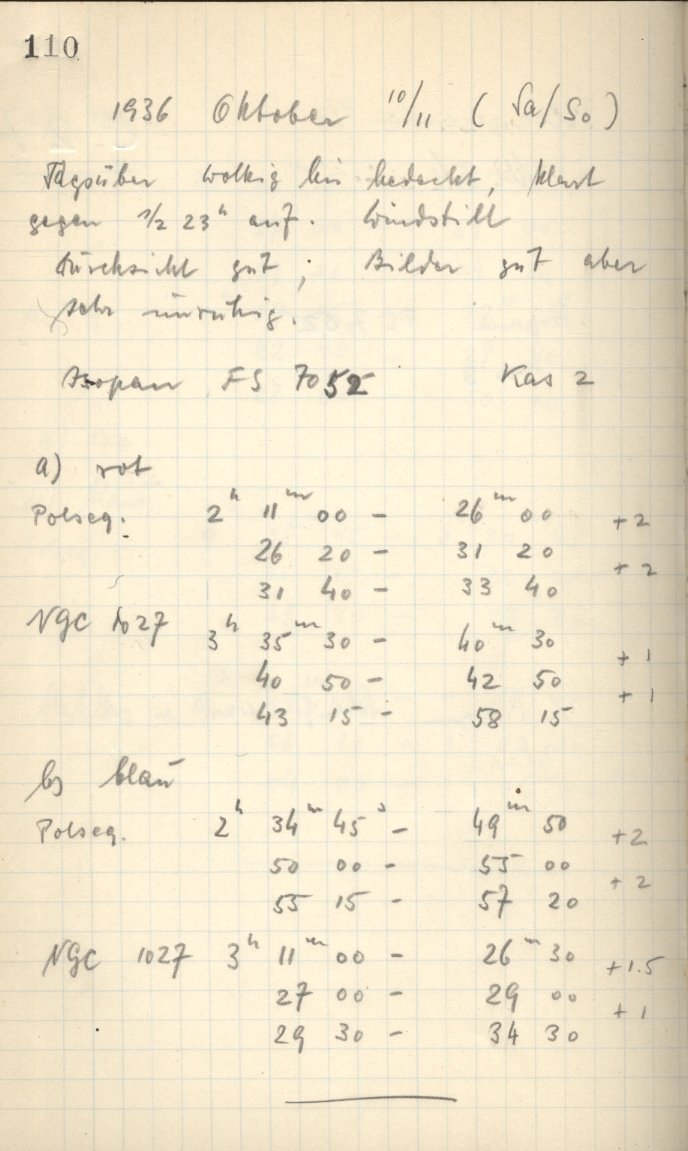 110
1936 Oktober 10/11 (Sa/So)
Tagsüber wolkig bis bedeckt, klart
gegen 1/2 23h auf. Windstill
Durchsicht gut; Bilder gut aber
sehr unruhig.
Isopan FS 7052 Kas 2
a) rot
Polseq. 2h 11m 00 - 26m 00 +2
26 20 - 31 20 +2
31 40 - 33 40
NGC 1027 3h 35m 30 - 40m 30 +1
40 50 - 42 50 +1
43 15 - 58 15
b) blau
Polseq. 2h 34m 45s - 49m 50 +2
50 00 - 55 00 +2
55 15 - 57 20
NGC 1027 3h 11m 00 - 26m 30 +1.5
27 00 - 29 00 +1
29 30 - 34 30